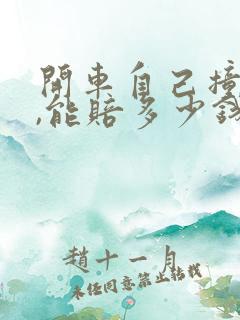 開車自己撞
,能賠多少錢
趙十一月
未經同意禁止轉載